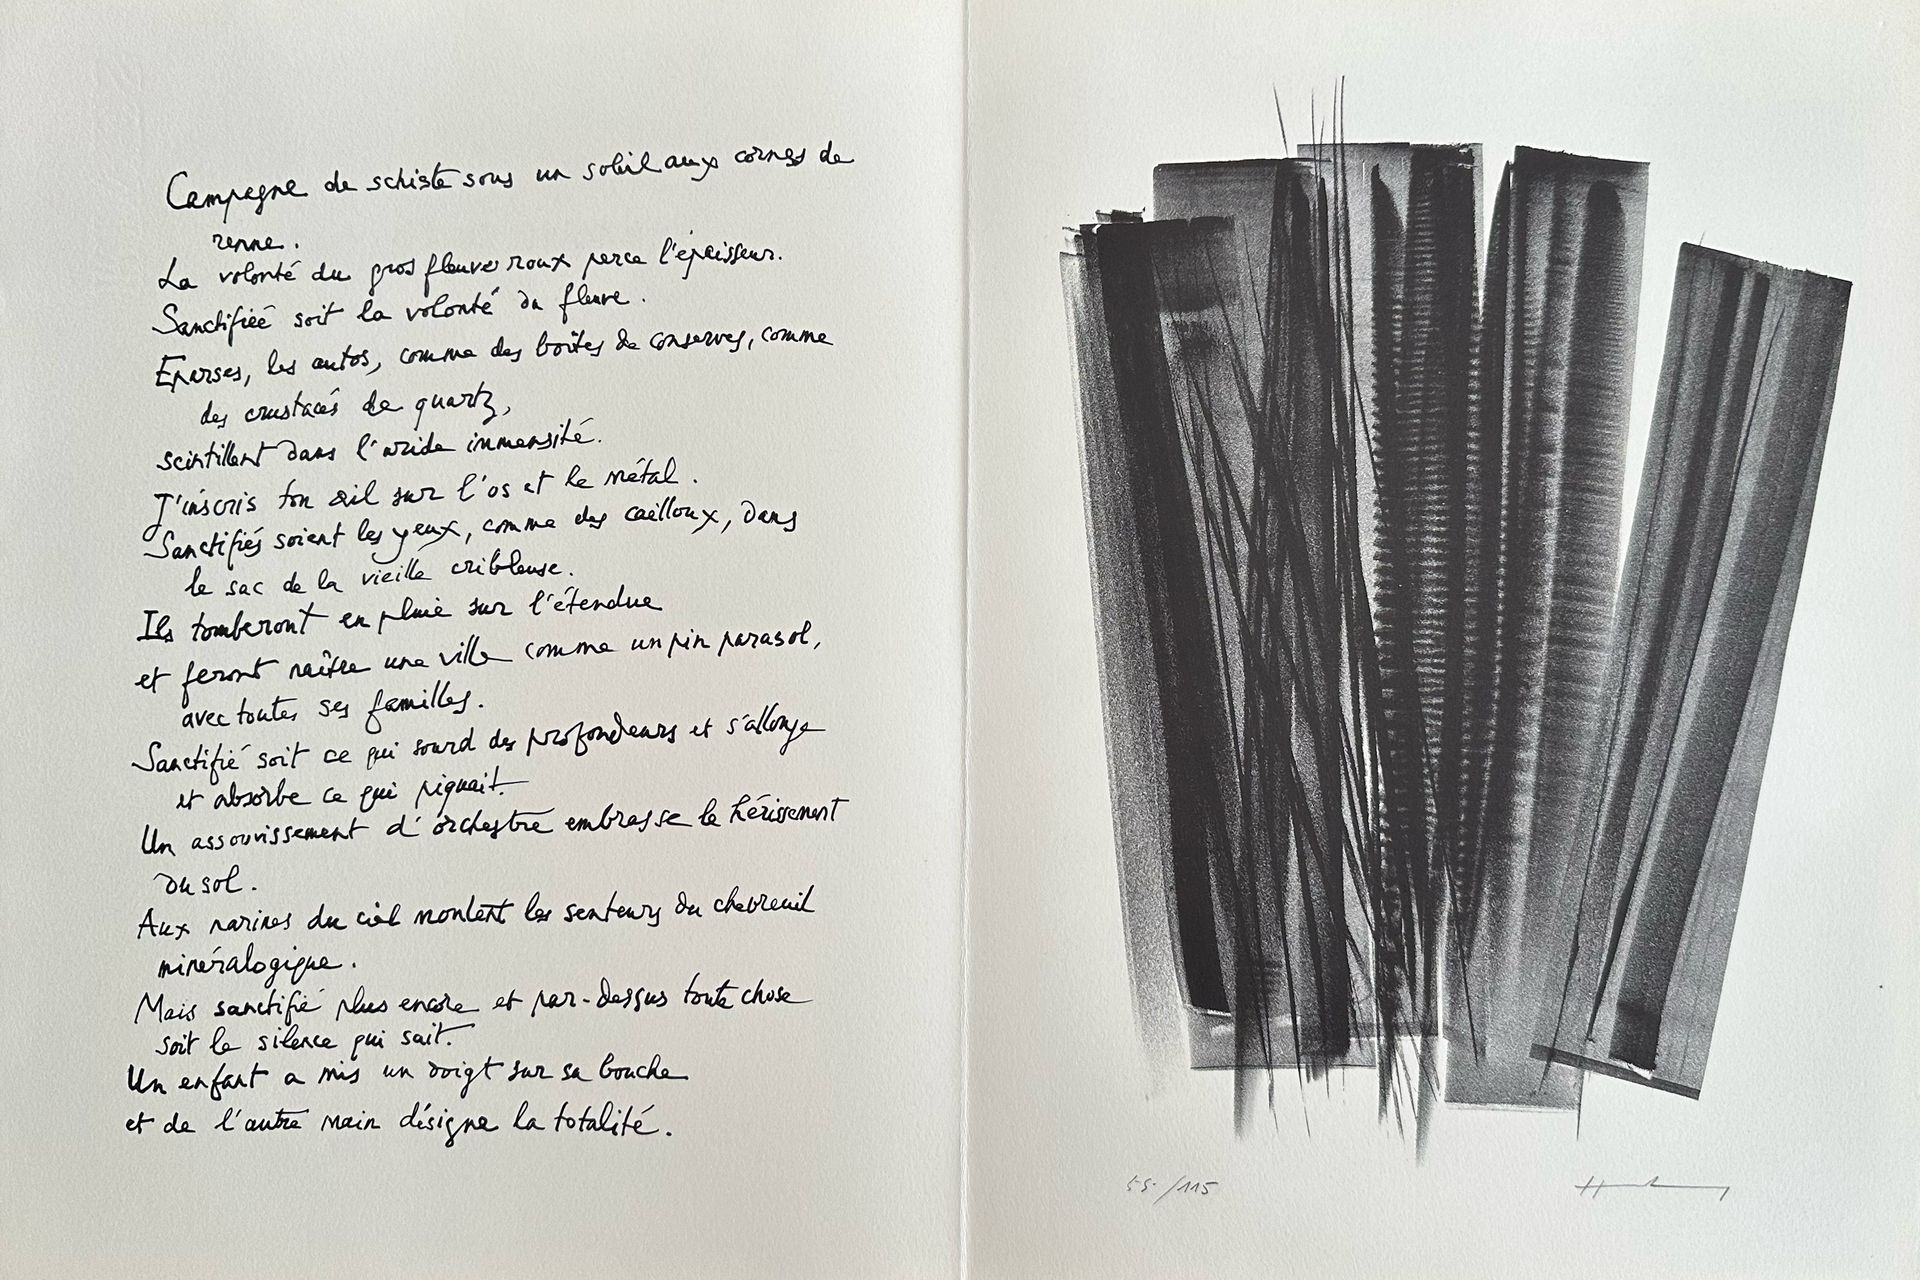 Campagne de schiste sous un soleil aux cornes de
renne.
La volonté du gros fleuve roux perce l'épaisseur.
Sanctifiée soit la volonté du fleuve.
Eparses, les autos, comme des boîtes de conserves, comme
des crustacés de quartz,
scintillent dans l'aride immensité.
J'inscris ton œil sur l'os et le métal.
Sanctifiés soient les yeux, comme des cailloux, dans
le sac de la vieille cribleuse.
Ils tomberont en pluie sur l'étendue
et feront naître une ville comme un pin parasol,
avec toutes ses familles.
Sanctifié soit ce qui sourd des profondeurs et s'allonge
et absorbe ce qui piquait.
Un assouvissement d'orchestre embrasse le hérissement
du sol.
Aux narines du ciel montent les senteurs du chevreuil
minéralogique.
Mais sanctifié plus encore et par-dessus toute chose
soit le silence qui sait.
Un enfant a mis un doigt sur sa bouche
et de l'autre main désigne la totalité.
55/115